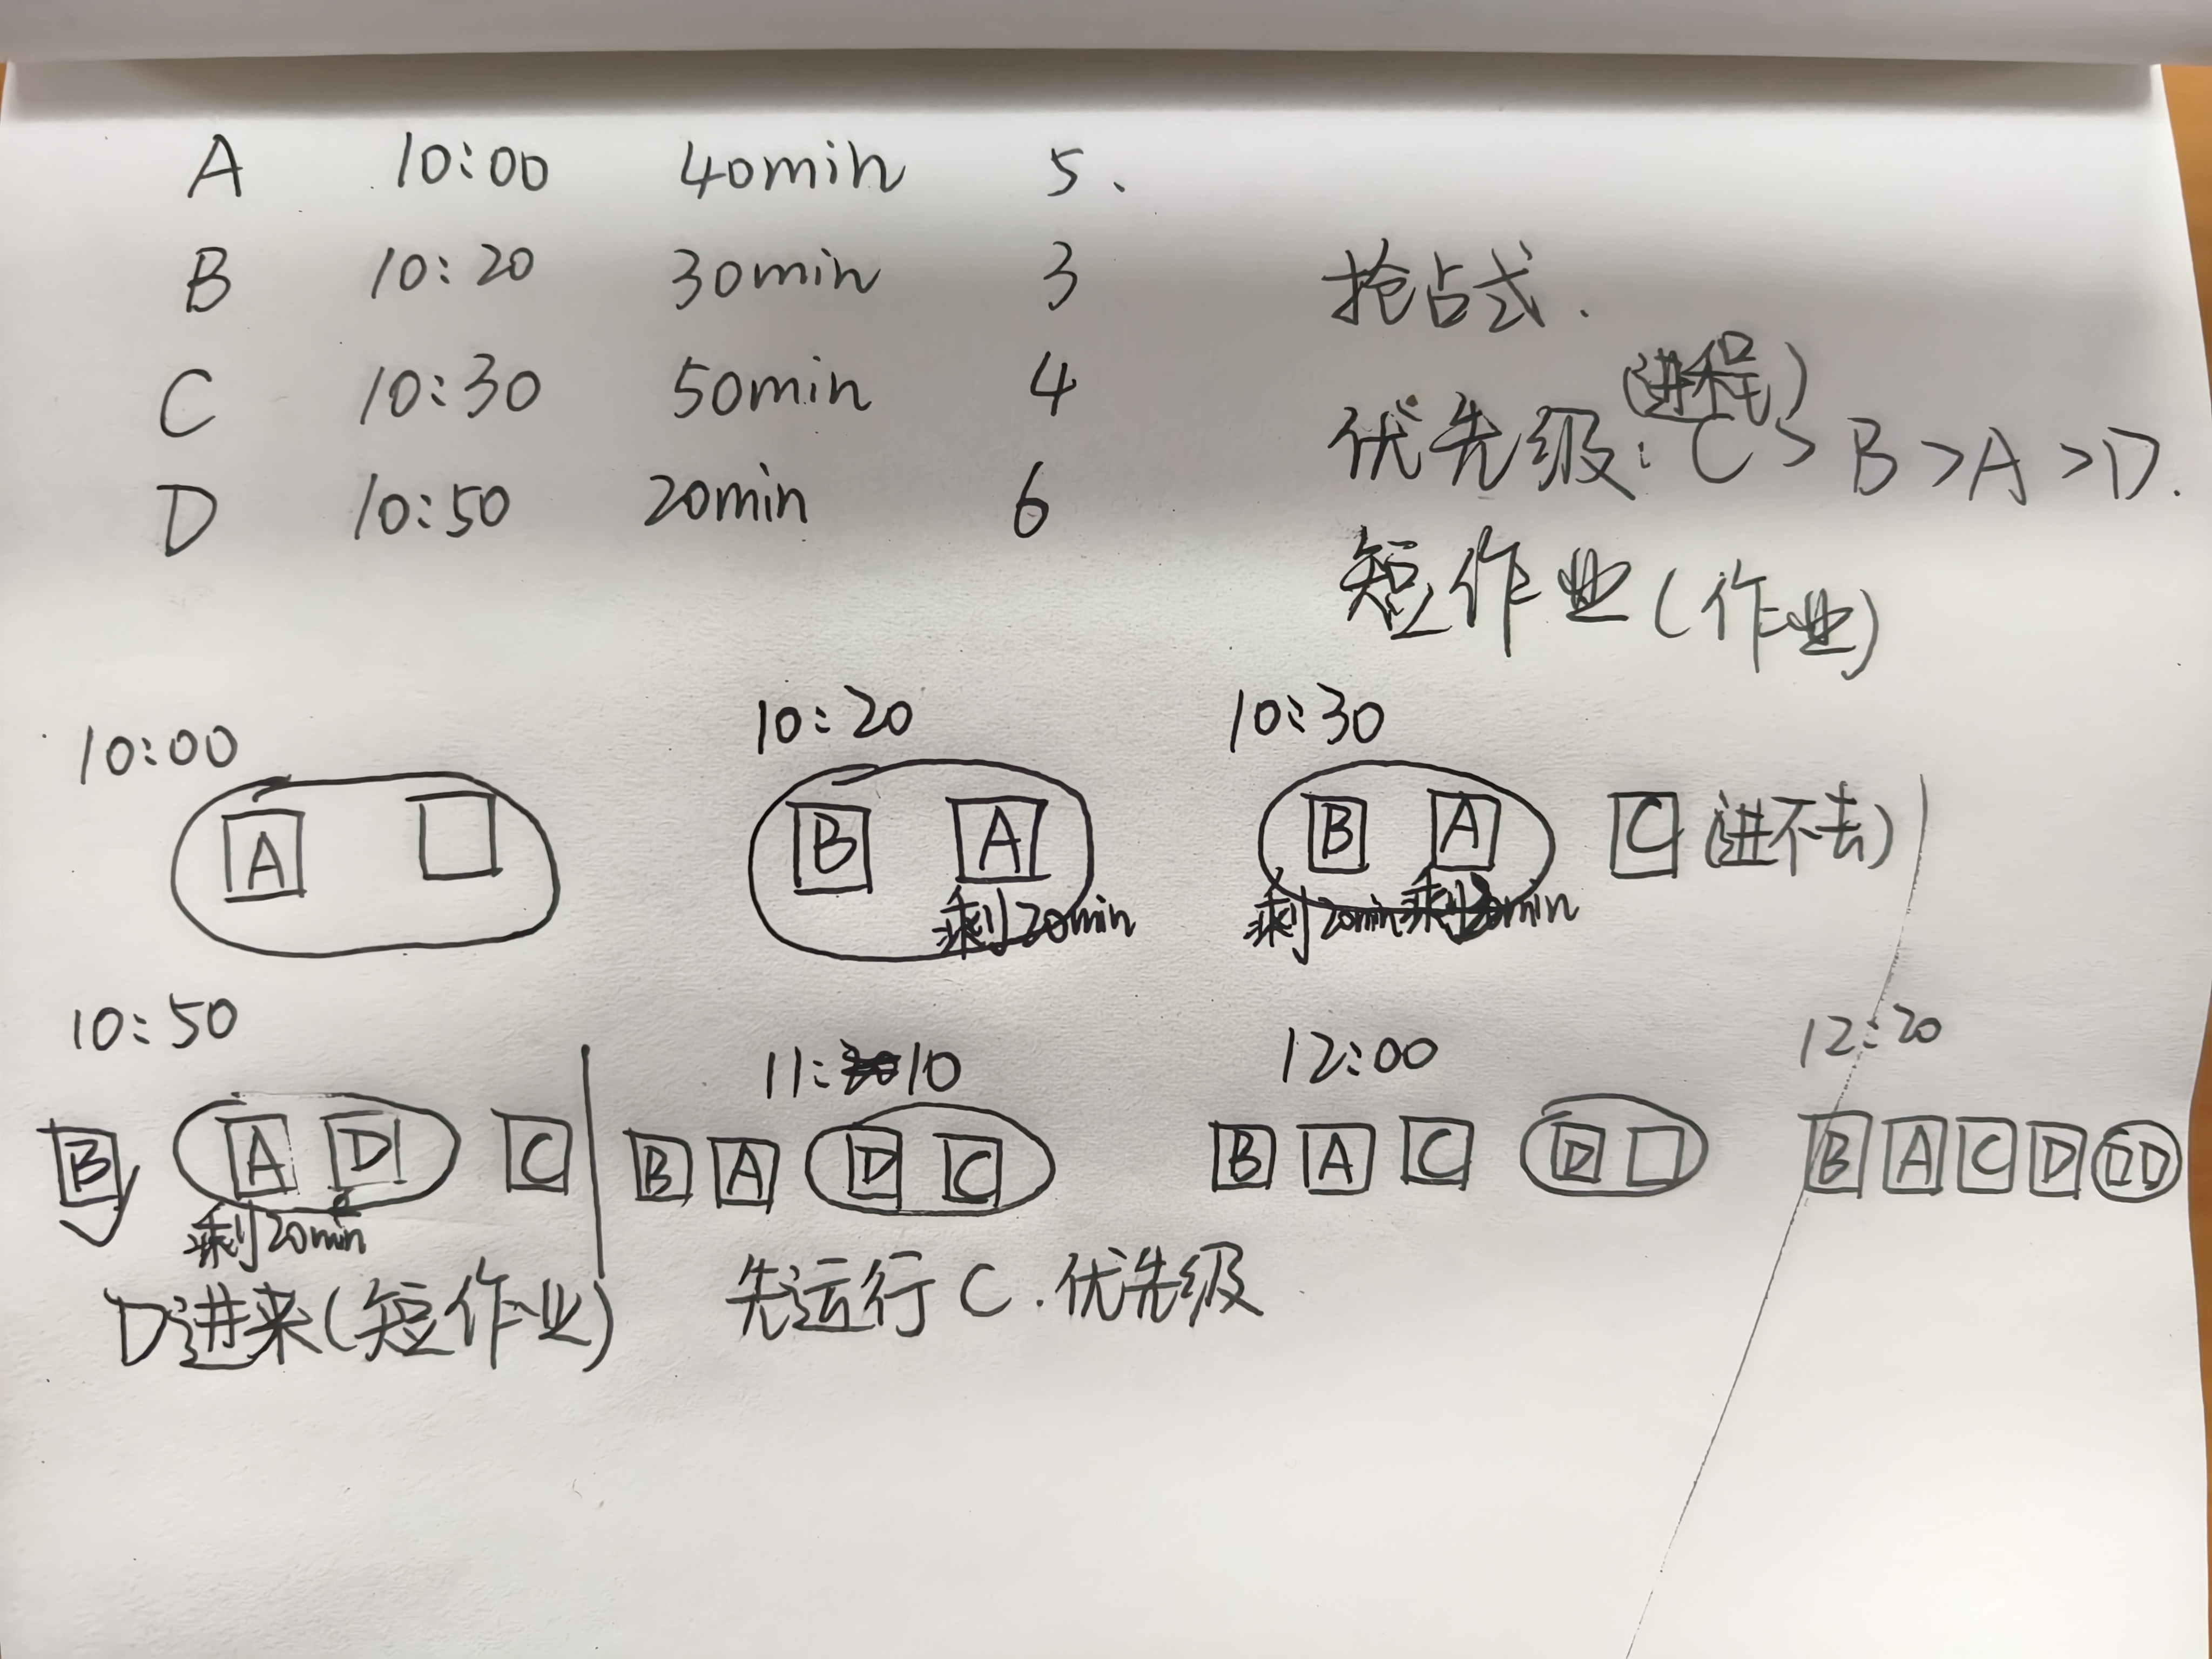 A 10:00 40min 5.
B 10:20 30min 3
C 10:30 50min 4
D 10:50 20min 6
抢占式.
(进程)
优先级: C > B > A > D.
短作业(作业)
10:00
A
10:20
B A
剩20min
10:30
B A C (进不去)
剩20min 剩20min
10:50
B A D C
剩20min
D进来(短作业)
11:10
B A D C
先运行C.优先级
12:00
B A C D
12:20
B A C D